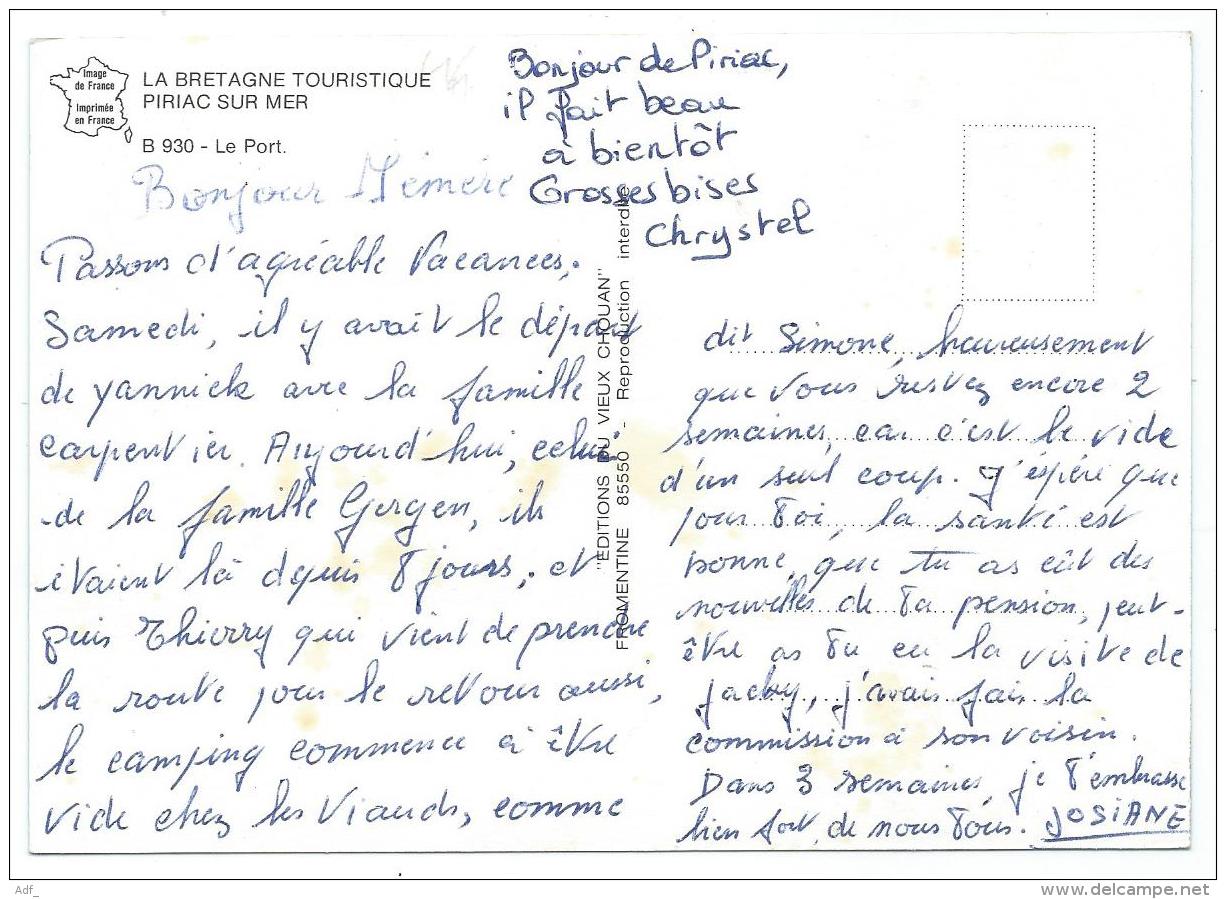 Image
de France
Imprimée
en France
LA BRETAGNE TOURISTIQUE
PIRIAC SUR MER
B 930 - Le Port.
Bonjour de Piriac,
il fait beau
à bientôt
Grosses bises
Chrystel
Bonjour Mémère
Passons d'agréable Vacances,.
Samedi, il y avait le départ
de yannick avec la famille
carpentier. Aujourd'hui, celui
de la famille Gergen, ils
étaient là depuis 8 jours, et
puis Thierry qui vient de prendre
la route pour le retour aussi,
le camping commence à être
vide chez les Viauds, comme
"EDITIONS DU VIEUX CHOUAN"
FROMENTINE 85550 - Reproduction interdite
dit Simone, heureusement
que vous restez encore 2
semaines, car c'est le vide
d'un seul coup. J'espère que
pour toi, la santé est
bonne, que tu as eût des
nouvelles de ta pension, peut-
être as tu eu la visite de
Jacky, j'avais fais la
commission à son voisin.
Dans 3 semaines, je t'embrasse
bien fort, de nous tous. JOSIANE
Adf_
www.delcampe.net